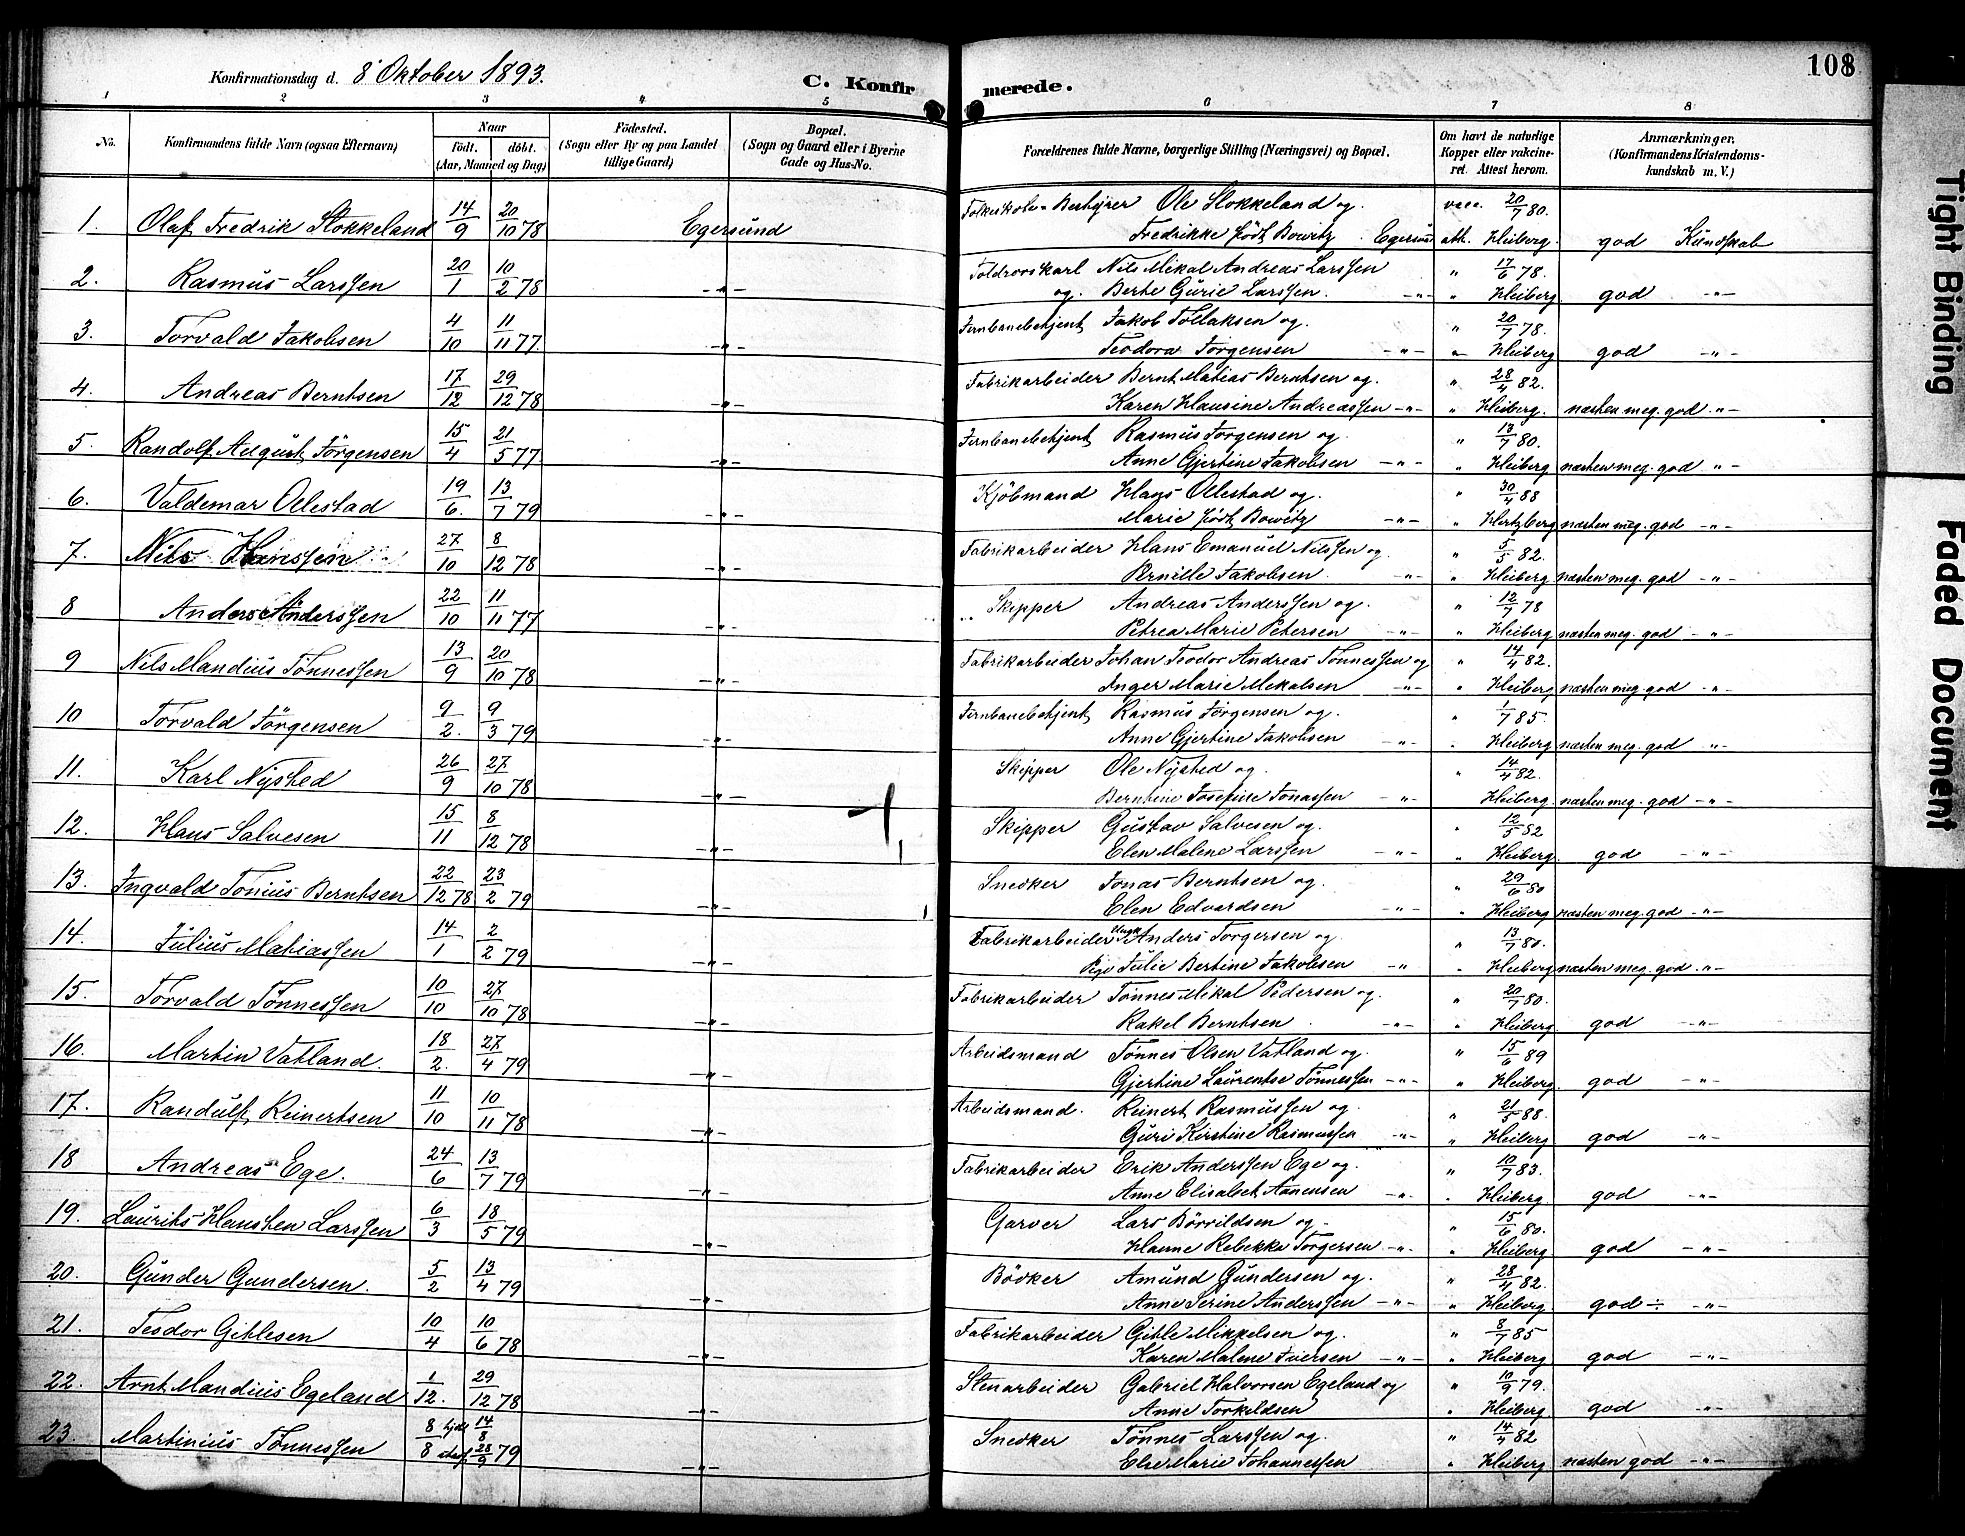 Konfirmationsdag d. 8 Oktober 1893.
C. Konfirmerede.
108
1 2 3 4 5 6 7 8
No.
Konfirmandens fulde Navn (ogsaa Efternavn)
Naar födt. döbt. (Aar, Maaned og Dag)
Födested. (Sogn eller By og paa Landet tillige Gaard)
Bopæl. (Sogn og Gaard eller i Byerne Gade og Hus-No.
Forældrenes fulde Navne, borgerlige Stilling (Næringsvei) og Bopæl.
Om havt de naturlige Kopper eller vakcineret. Attest herom.
Anmærkninger. (Konfirmandens Kristendomskundskab m. V.)
1. Olaf Fredrik Stokkeland 14/9 20/10 78 Egersund Folkeskole-Bestyrer Ole Stokkeland og vacc. 20/7 80.
Fredrikke födt Bowitz Egersund att. Heiberg. god Kundskab
2. Rasmus Larssen 20/1 10/2 78 -"- Toldrorskarl Nils Mikal Andreas Larssen " 17/6 78.
og Berte Gurie Larssen. -"- " Heiberg god -"-
3. Torvald Jakobsen 4/10 11/11 77. -"- Jernbanebetjent Jakob Tollaksen og. " 20/7 78.
Teodora Jorgensen -"- " Heiberg god -"-
4. Andreas Berntsen 17/12 29/12 78 -"- Fabrikarbeider Bernt Matias Berntsen og. " 28/4 82.
Karen Hansine Andreassen -"- " Heiberg. næsten meg. god -"-
5. Randolf August Jörgensen 15/4 21/5 77 -"- Jernbanebetjent Rasmus Jorgensen og " 13/7 80.
Anne Gjertine Jakobsen -"- " Heiberg næsten meg. god -"-
6. Valdemar Ollestad 19/6. 13/7 79 -"- Kjöbmand Hans Ollestad og. " 30/4 88
Marie födt Bowitz -"- " Hertzberg næsten meg. god -"-
7. Nils Hanssen 27/10 8/12 78 -"- Fabrikarbeider Hans Emanuel Nilssen og " 5/5 82.
Pernille Jakobsen. -"- " Heiberg næsten meg. god -"-
8 Anders Anderssen 22/10 11/11 77 -"- Skipper Andreas Anderssen og. " 12/7 78
Petrea Marie Petersen -"- " Heiberg næsten meg. god -"-
9 Nils Mandius Tönnessen 13/9 20/10 78 -"- Fabrikarbeider Johan Teodor Andreas Tönnessen og " 14/4 82.
Inger Marie Mekalsen -"- " Heiberg næsten meg. god -"-
10 Torvald Jörgensen 9/2. 9/3 79 -"- Jernbanebetjent Rasmus Jörgensen og. " 1/7 85.
Anne Gjertine Jakobsen -"- " Heiberg næsten meg. god -"-
11. Karl Nysted 26/9 27/10 78 -"- Skipper Ole Nysted og. " 14/4 82.
Berntine Josefine Jonassen -"- Heiberg. næsten meg. god -"-
12. Hans Salvesen 15/11 8/12 78 -"- Skipper Gustav Salvesen og. " 12/5 82
Elen Malene Larssen -"- " Heiberg. god -"-
13. Ingvald Tonius Berntsen 22/12 78 23/2 79 -"- Snedker Jonas Berntsen og. " 29/6 80
Elen Edvardsen -"- " Heiberg næsten meg. god -"-
14. Julius Matiassen 14/1 2/2 79 -"- Fabrikarbeider Ungk. Anders Torgersen og " 13/7 80.
Pige Julie Bertine Jakobsen -"- " Heiberg næsten meg. god -"-
15. Torvald Tönnessen 10/10 27/10 78 -"- Fabrikarbeider Tönnes Mikal Pedersen og. " 20/7 80.
Rakel Berntsen -"- " Heiberg god -"-
16. Martin Vatland. 18/2. 27/4 79 -"- Arbeidsmand Tönnes Olsen Vatland og. " 15/6 89
Gjertine Laurentse Tönnessen -"- " Heiberg. god -"-
17. Randulf Reinertsen 11/10 10/11 78 -"- Arbeidsmand. Reinert Rasmussen og. " 21/5 88.
Guri Kirstine Rasmussen -"- " Heiberg god -"-
18 Andreas Ege. 24/6 13/7 79 -"- Fabrikarbeider Erik Anderssen Ege og. " 10/7 83.
Anne Elisabet Aanensen -"- " Heiberg god -"-
19. Laurits Hansten Larssen 6/3 18/5 79 -"- Garver Lars Börrildsen og " 15/6 80.
Hanne Rebekka Torgersen -"- " Heiberg god -"-
20. Gunder Gundersen. 5/2 13/4 79 -"- Bödker Amund Gundersen og. " 28/4 82.
Anne Serine Anderssen -"- " Heiberg god ÷ -"-
21. Teodor Gitlesen 10/4 10/6 78 -"- Fabrikarbeider Gitle Mikkelsen og. " 8/7 85
Karen Malene Iversen -"- " Heiberg god -"-
22. Arnt Mandius Egeland 1/12. 29/12 78 -"- Stenarbeider Gabriel Halvorsen Egeland og " 10/9 79.
Anne Torkeldsen " Heiberg. god -"-
23. Martinius Tönnessen 8/8 14/8 28/9 79 -"- Snedker Tönnes Larssen og. " 14/4 82
Else Marie Johannessen " Heiberg næsten god -"-
Tight Binding
Faded Document